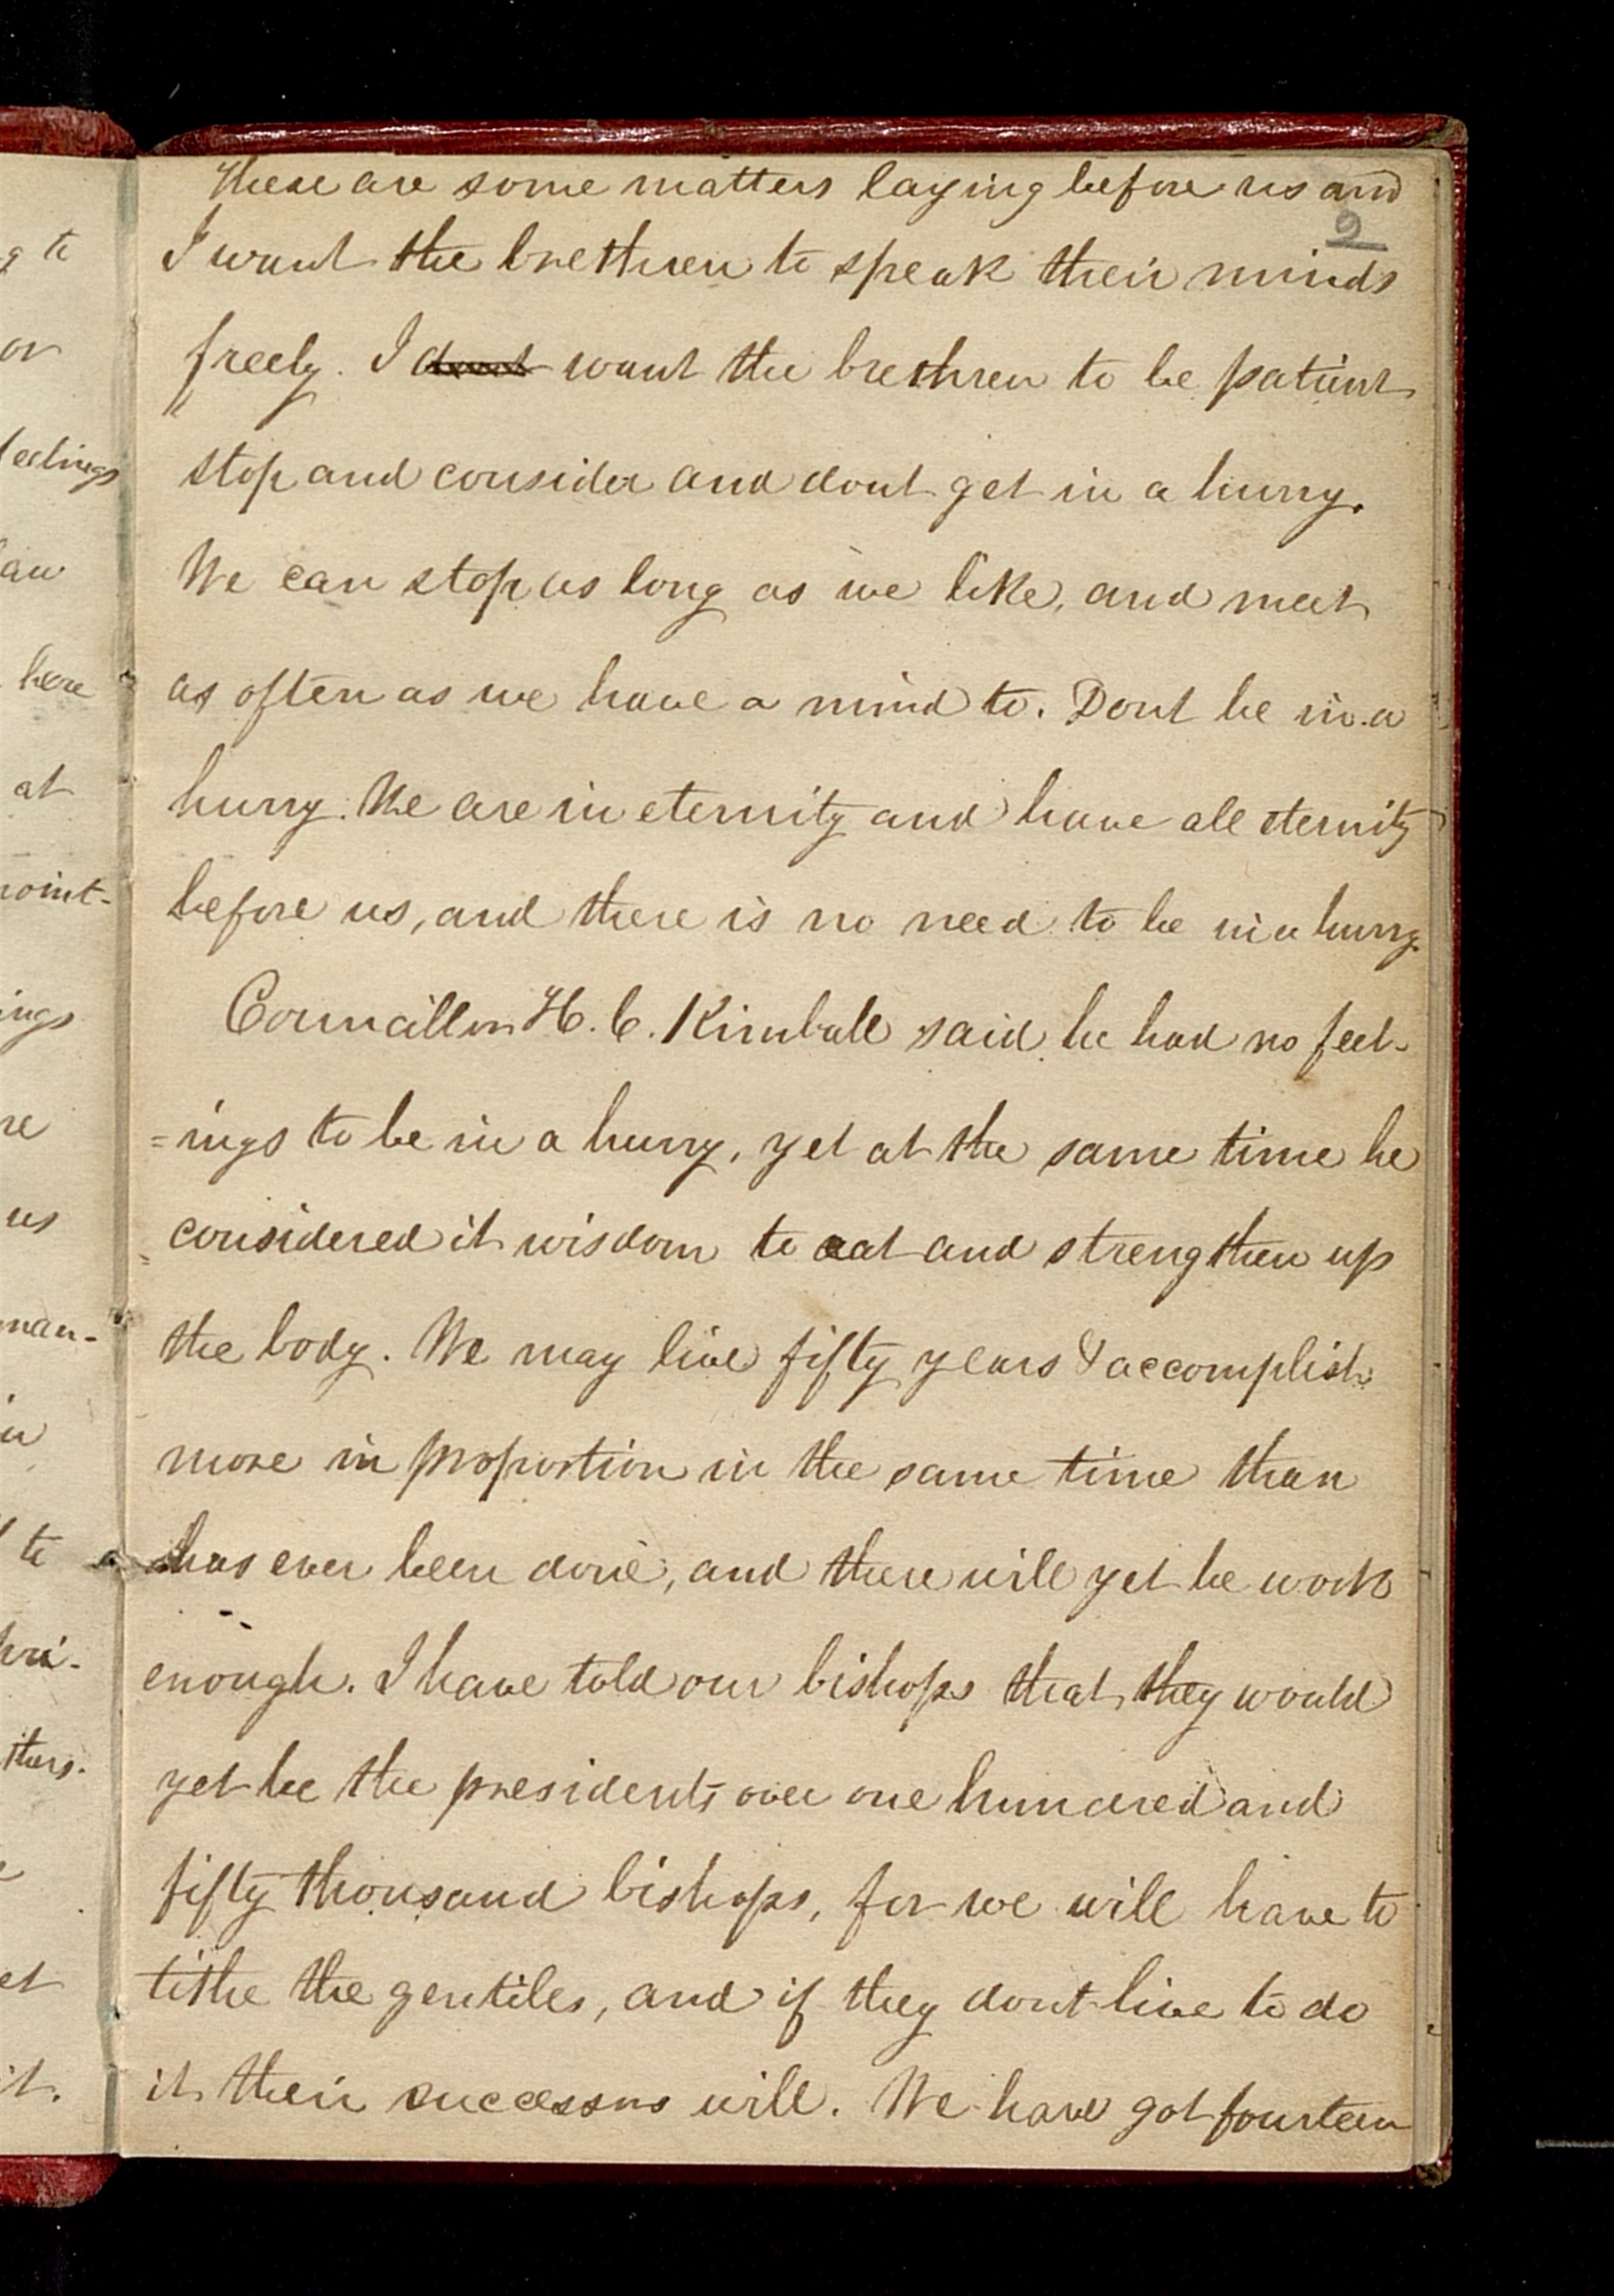 These are some matters laying before us and
2
I want the brethren to speak their minds
freely. I dont want the brethren to be patient
stop and consider and dont get in a hurry.
We can stop as long as we like, and meet
as often as we have a mind to. Dont be in a
hurry. We are in eternity and have all eternity
before us, and there is no need to be in a hurry.
Councillor H. C. Kimball said he had no feel-
=ings to be in a hurry, yet at the same time he
considered it wisdom to eat and strengthen up
the body. We may live fifty years & accomplish
more in proportion in the same time than
has ever been done, and there will yet be work
enough. I have told our bishops that they would
yet be the presidents over one hundred and
fifty thousand bishops, for we will have to
tithe the gentiles, and if they dont live to do
it their successors will. We have got fourteen
g to
or
feelings
law
here
at
point-
ings
re
us
man-
in
to
hri-
thers.
et
it.